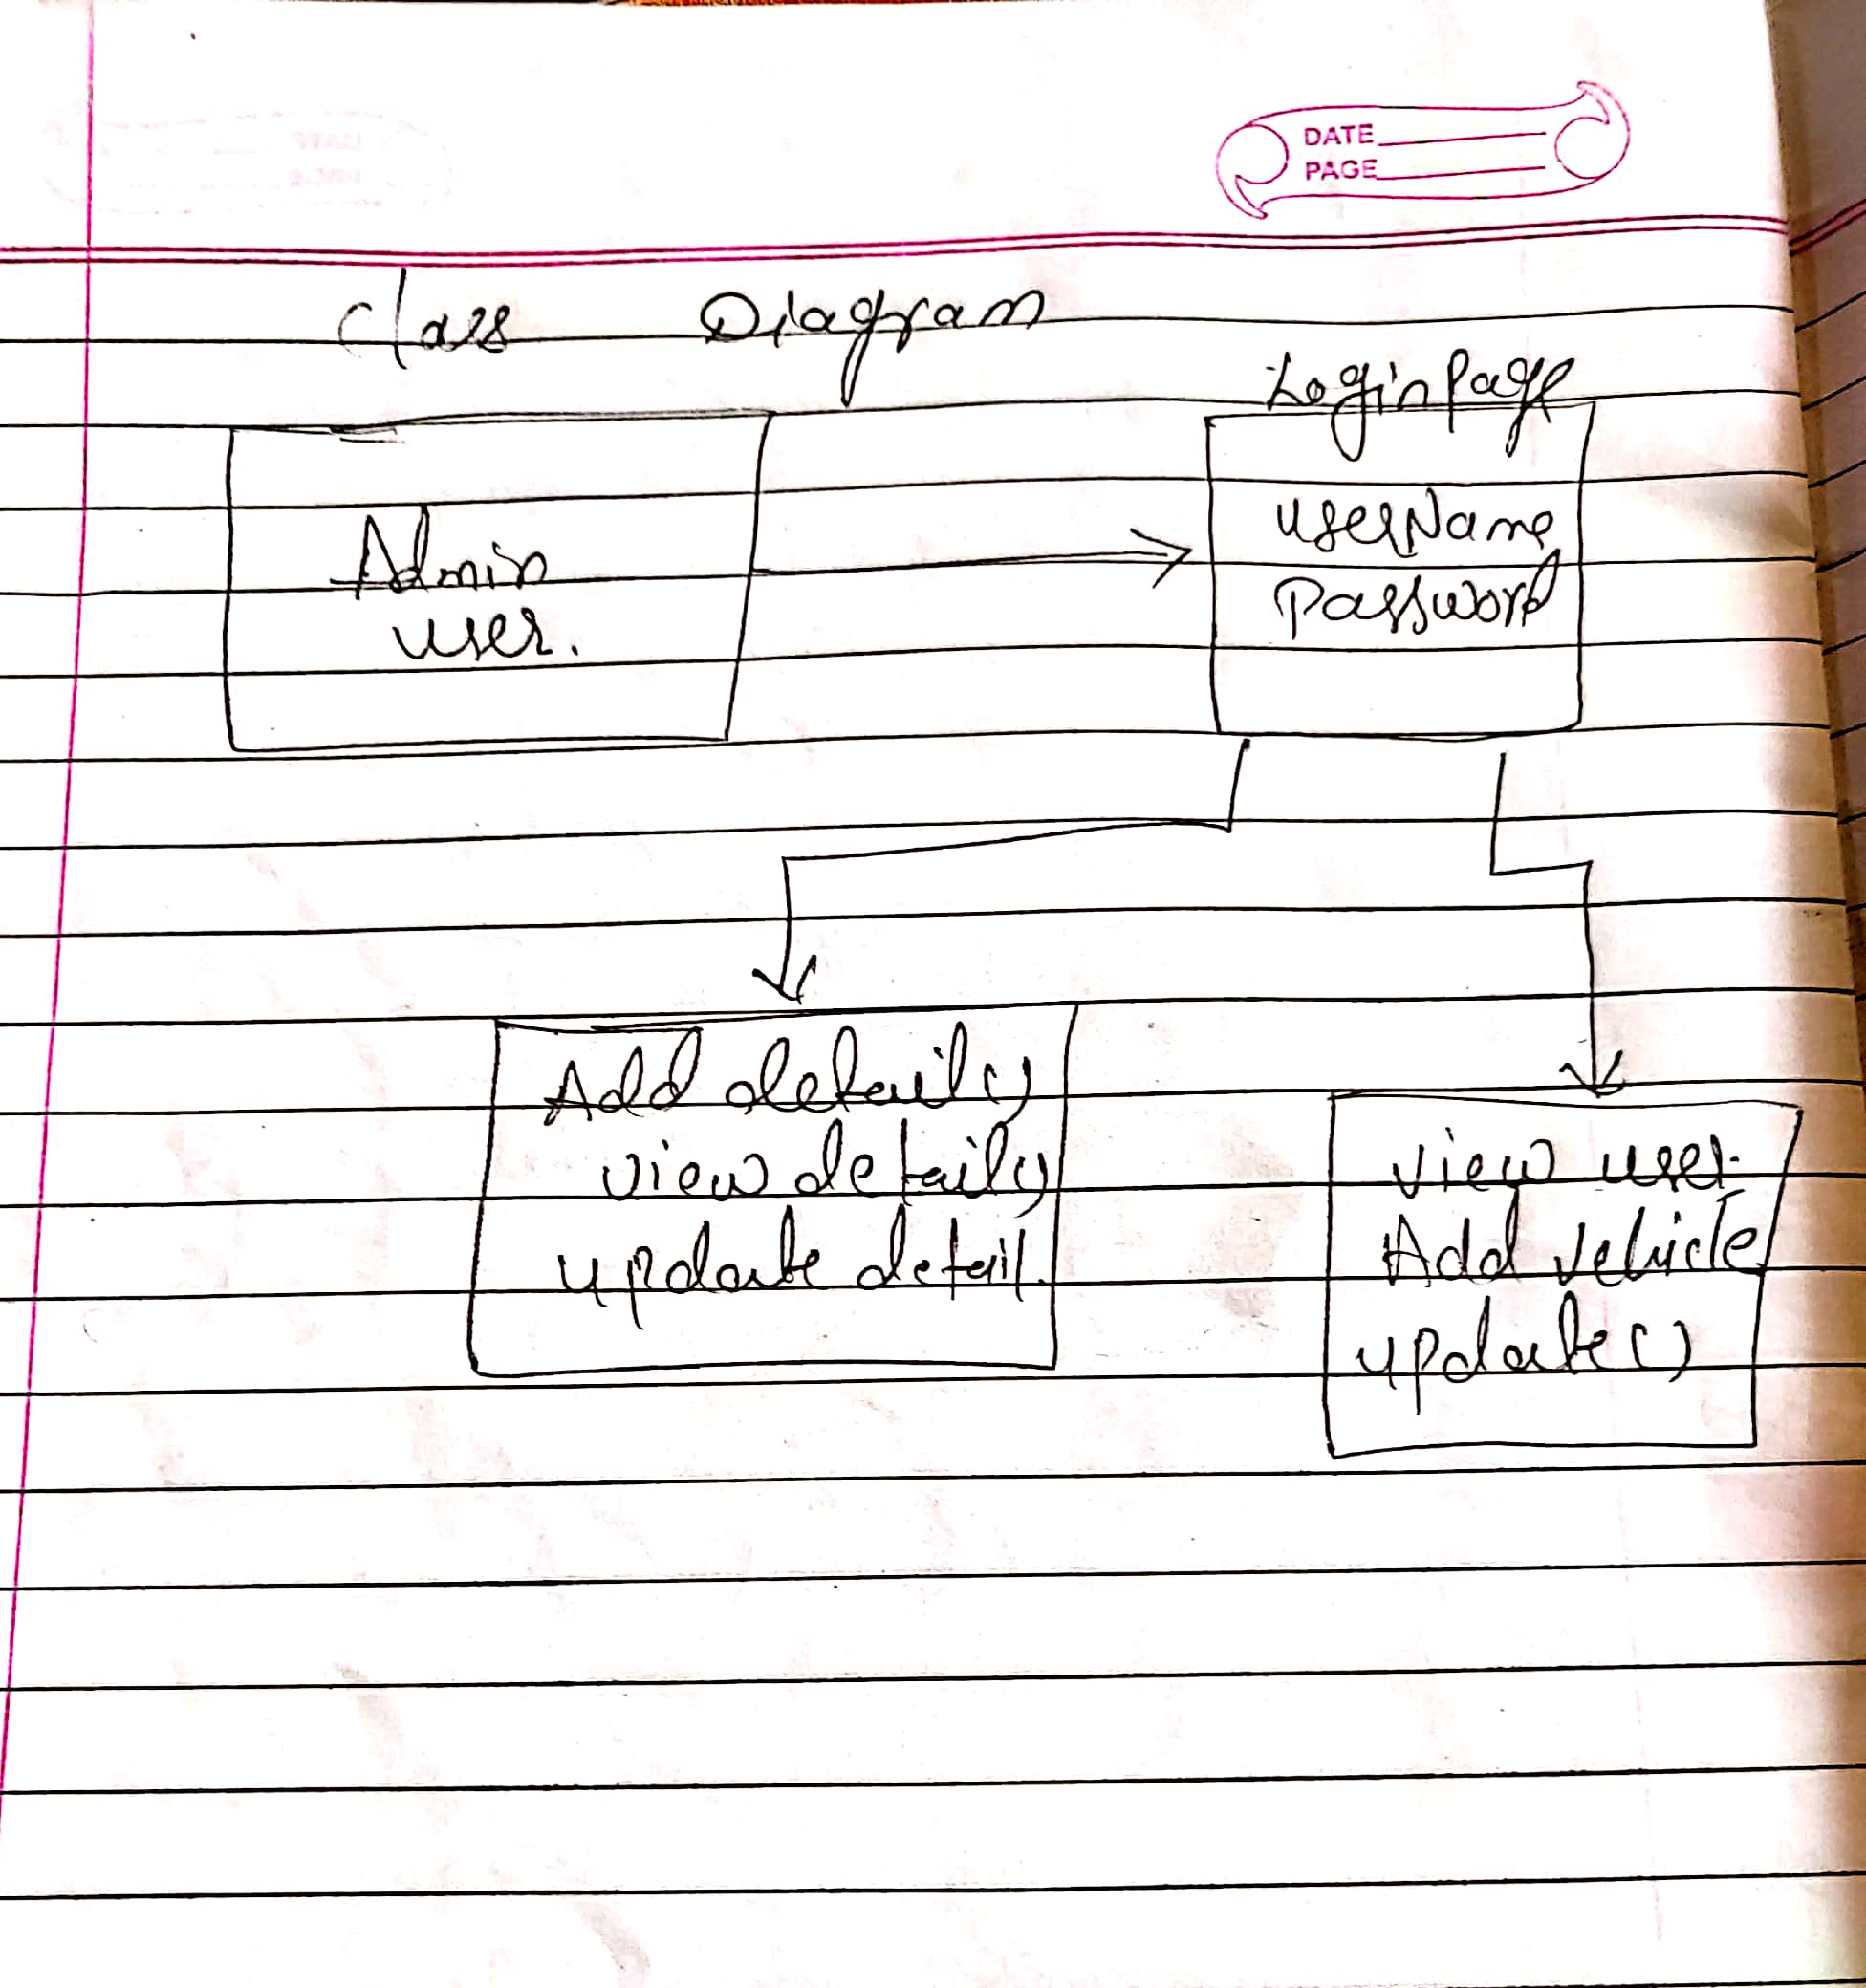 DATE
PAGE
Class Diagram
Login Page
Admin
user.
UserName
Password
Add details
view details
update detail.
view user.
Add vehicle
update()